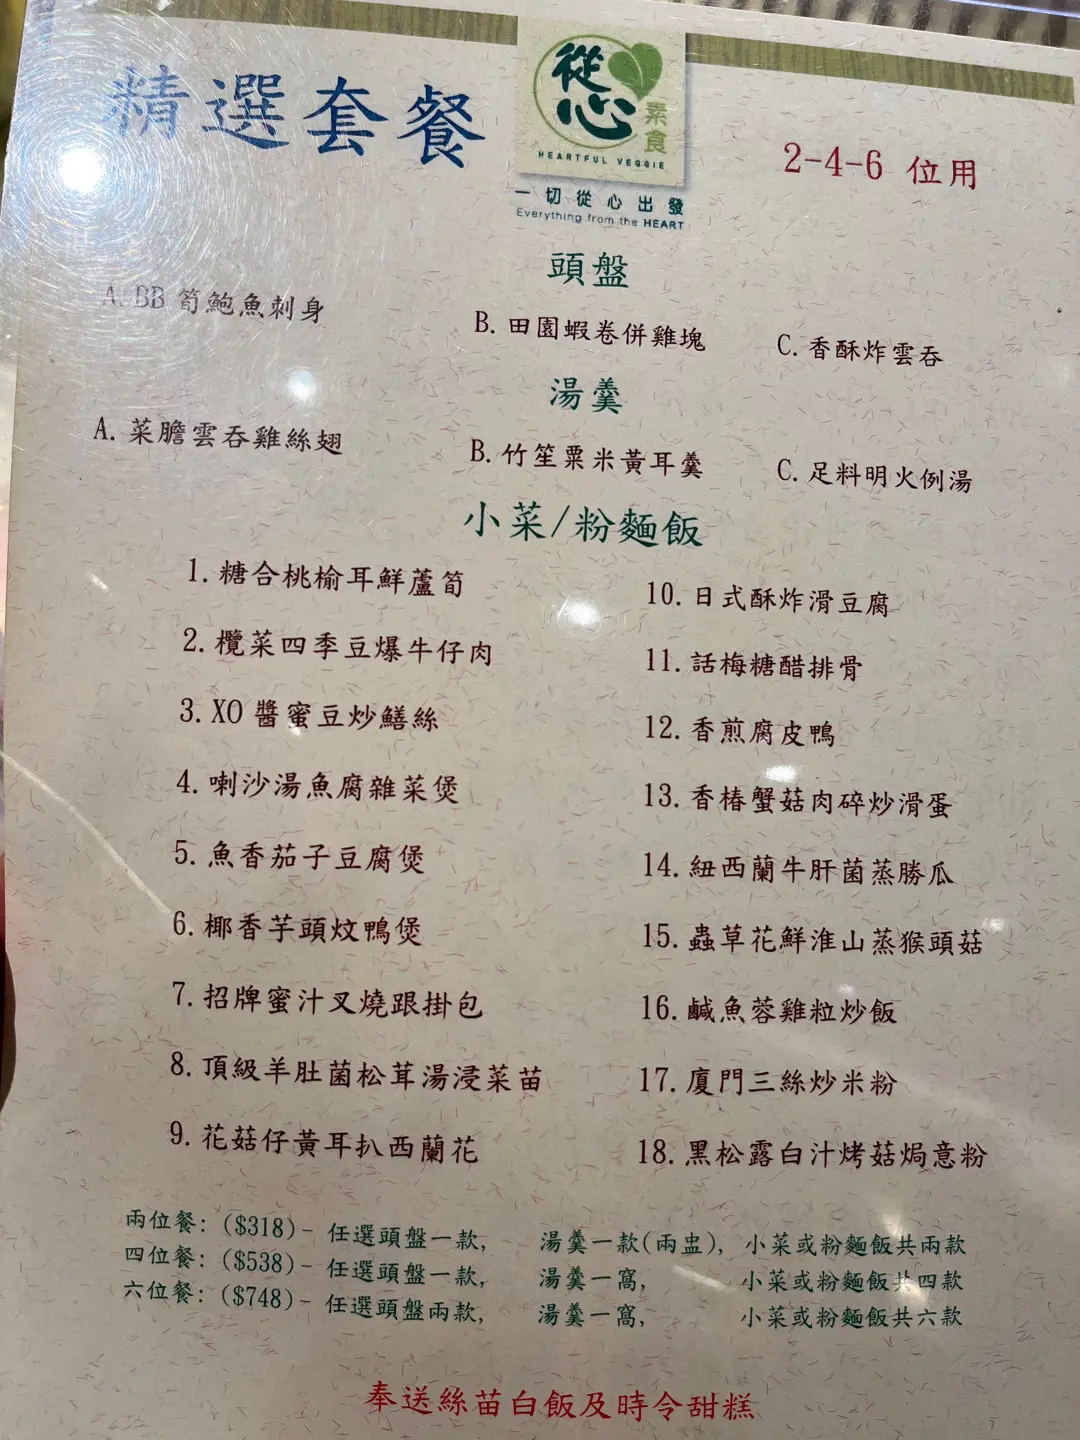 精選套餐
從心
素食
HEARTFUL VEGGIE
一切從心出發
Everything from the HEART
2-4-6 位用
頭盤
A. BB 筍鮑魚刺身
B. 田園蝦卷併雞塊
C. 香酥炸雲吞
湯羹
A. 菜膽雲吞雞絲翅
B. 竹笙粟米黃耳羹
C. 足料明火例湯
小菜/粉麵飯
1. 糖合桃榆耳鮮蘆筍
2. 欖菜四季豆爆牛仔肉
3. XO 醬蜜豆炒鱔絲
4. 喇沙湯魚腐雜菜煲
5. 魚香茄子豆腐煲
6. 椰香芋頭炆鴨煲
7. 招牌蜜汁叉燒跟掛包
8. 頂級羊肚菌松茸湯浸菜苗
9. 花菇仔黃耳扒西蘭花
10. 日式酥炸滑豆腐
11. 話梅糖醋排骨
12. 香煎腐皮鴨
13. 香椿蟹菇肉碎炒滑蛋
14. 紐西蘭牛肝菌蒸勝瓜
15. 蟲草花鮮淮山蒸猴頭菇
16. 鹹魚蓉雞粒炒飯
17. 廈門三絲炒米粉
18. 黑松露白汁烤菇焗意粉
兩位餐: ($318)- 任選頭盤一款, 湯羹一款(兩盅), 小菜或粉麵飯共兩款
四位餐: ($538)- 任選頭盤一款, 湯羹一窩, 小菜或粉麵飯共四款
六位餐: ($748)- 任選頭盤兩款, 湯羹一窩, 小菜或粉麵飯共六款
奉送絲苗白飯及時令甜糕